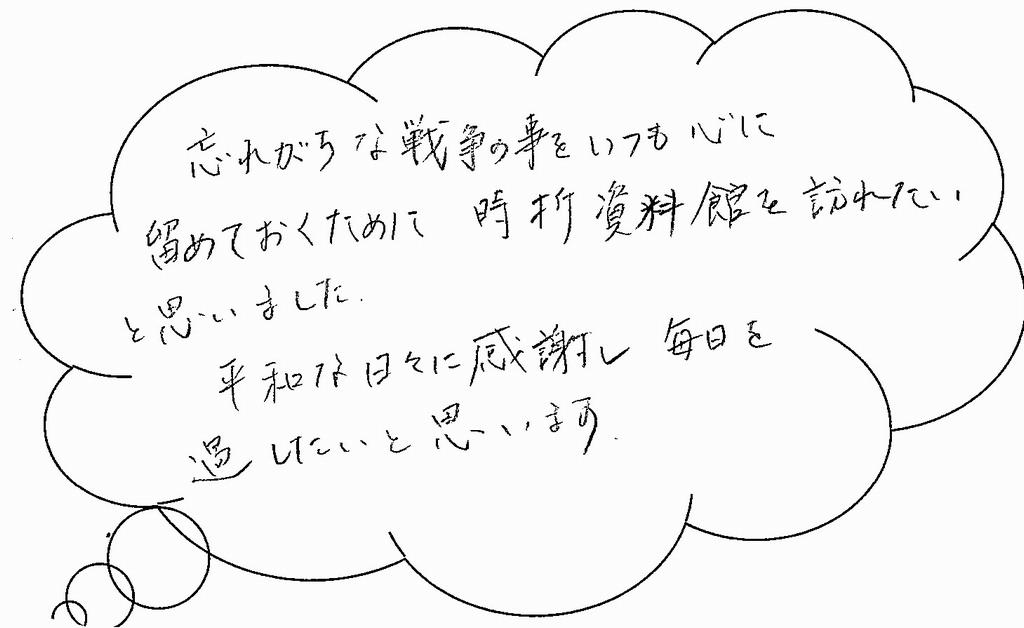 忘れがちな戦争の事をいつも心に
留めておくために 時折資料館を訪れたい
と思いました.
平和な日々に感謝し 毎日を
過したいと思います.